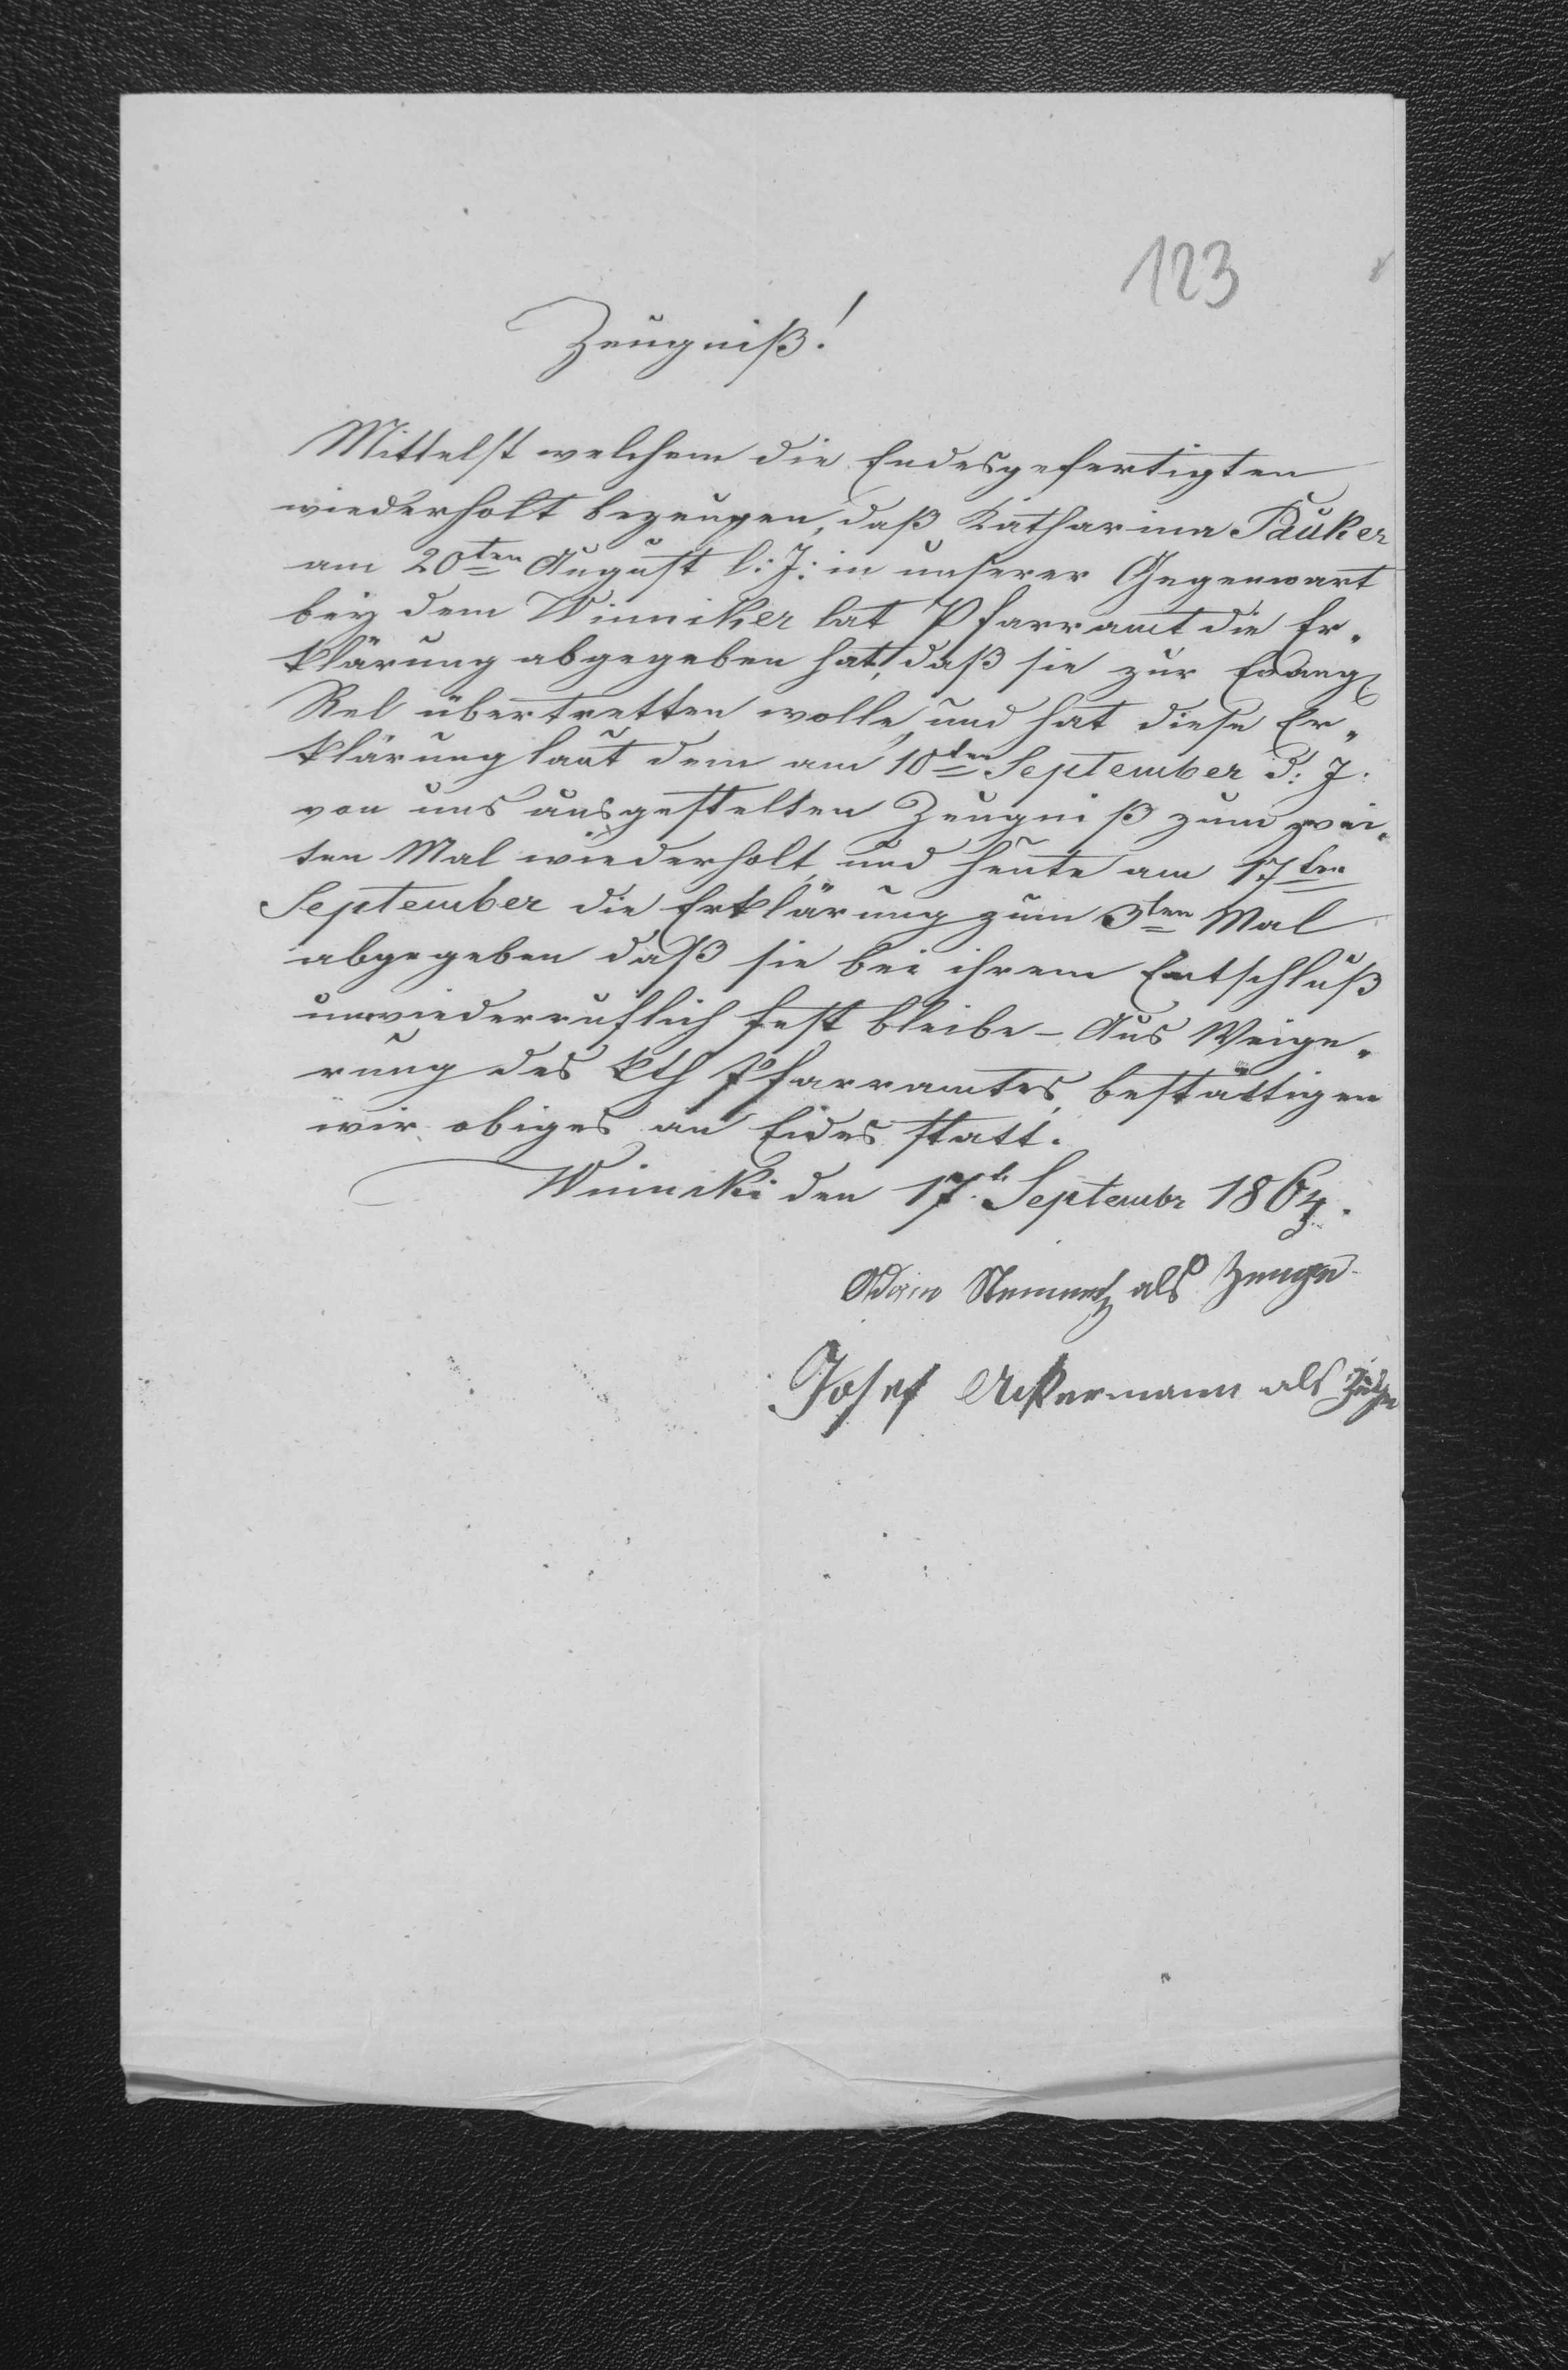 123
Zeugniß!
Mittelst welchem die Endesgefertigten
wiederholt bezeugen, daß Katharina Pauker
am 20ten August l: J: in unserer Gegenwart
bey dem Winniker lat Pfarramt die Er„
klärung abgegeben hat, daß sie zur Evang
Rel übertretten wolle, und hat diese Er„
klärung laut dem am 10ten September d: J:
von uns ausgestelten Zeugniß zum zwei„
ten Mal wiederholt, und heute am 17ten
September die Erklärung zum 3ten Mal
abgegeben daß sie bei ihrem Entschluß
unwiederruflich fest bleibe – Aus Weige„
rung des kth Pfarramtes, bestättigen
wir obiges an Eides statt.
Winniki den 17t. Septembr 1864.
Adam als Zeuge
Josef Ackermann als Zeuge